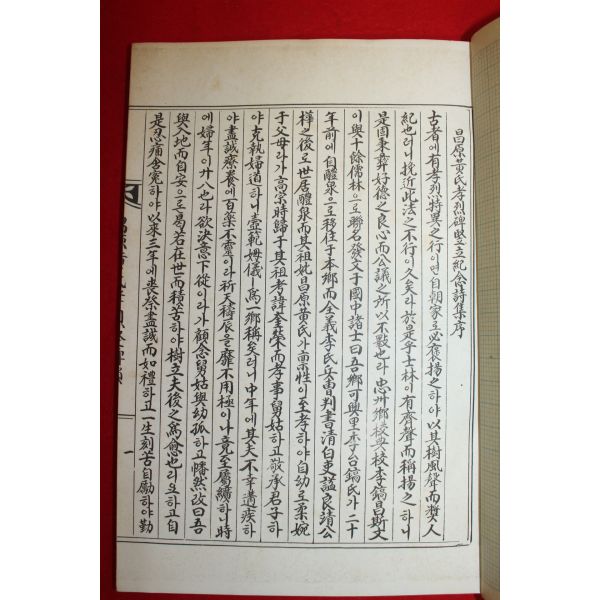 昌原黃氏孝烈碑竪立紀念詩集序
古者에有孝烈特異之行이면自朝家로必褒揚之하야以其樹風聲而獎人
紀也러니挽近此法之不行이久矣라於是乎士林이有齊聲而稱揚之하니
是固秉彛好德之良心而公議之所以不斁也라忠州鄕校典校李鎬昌斯文
이與十餘儒林으로聯名發文于國中諸士曰吾鄕可興里李台鎬氏가二十
年前에自醴泉으로移住于本鄕而全義李氏兵曹判書淸白吏謚良靖公
樺之後로世居醴泉而其祖妣昌原黃氏가禀性이至孝하야自幼로柔婉
于父母라가高榮時歸于其祖考諱奎榮而孝事舅姑하고敬承君子하
야克執婦道하니壼範姆儀一爲一鄕稱矣러니中年에其夫不幸遘疾하
야盡誠療養에百藥不靈이라祈天禱辰을靡不用極이나竟至屬纊하니時
에婦年이廿八也라欲決意下從이라가顧念舅姑與幼孤하고幡然改曰吾
與入地而自安으로曷若在世而積苦하야樹立夫後之爲愈也리오하고自
是忍痛含寃하야以來三年에喪祭盡誠而如禮하고一生刻苦自勵하야勤
一